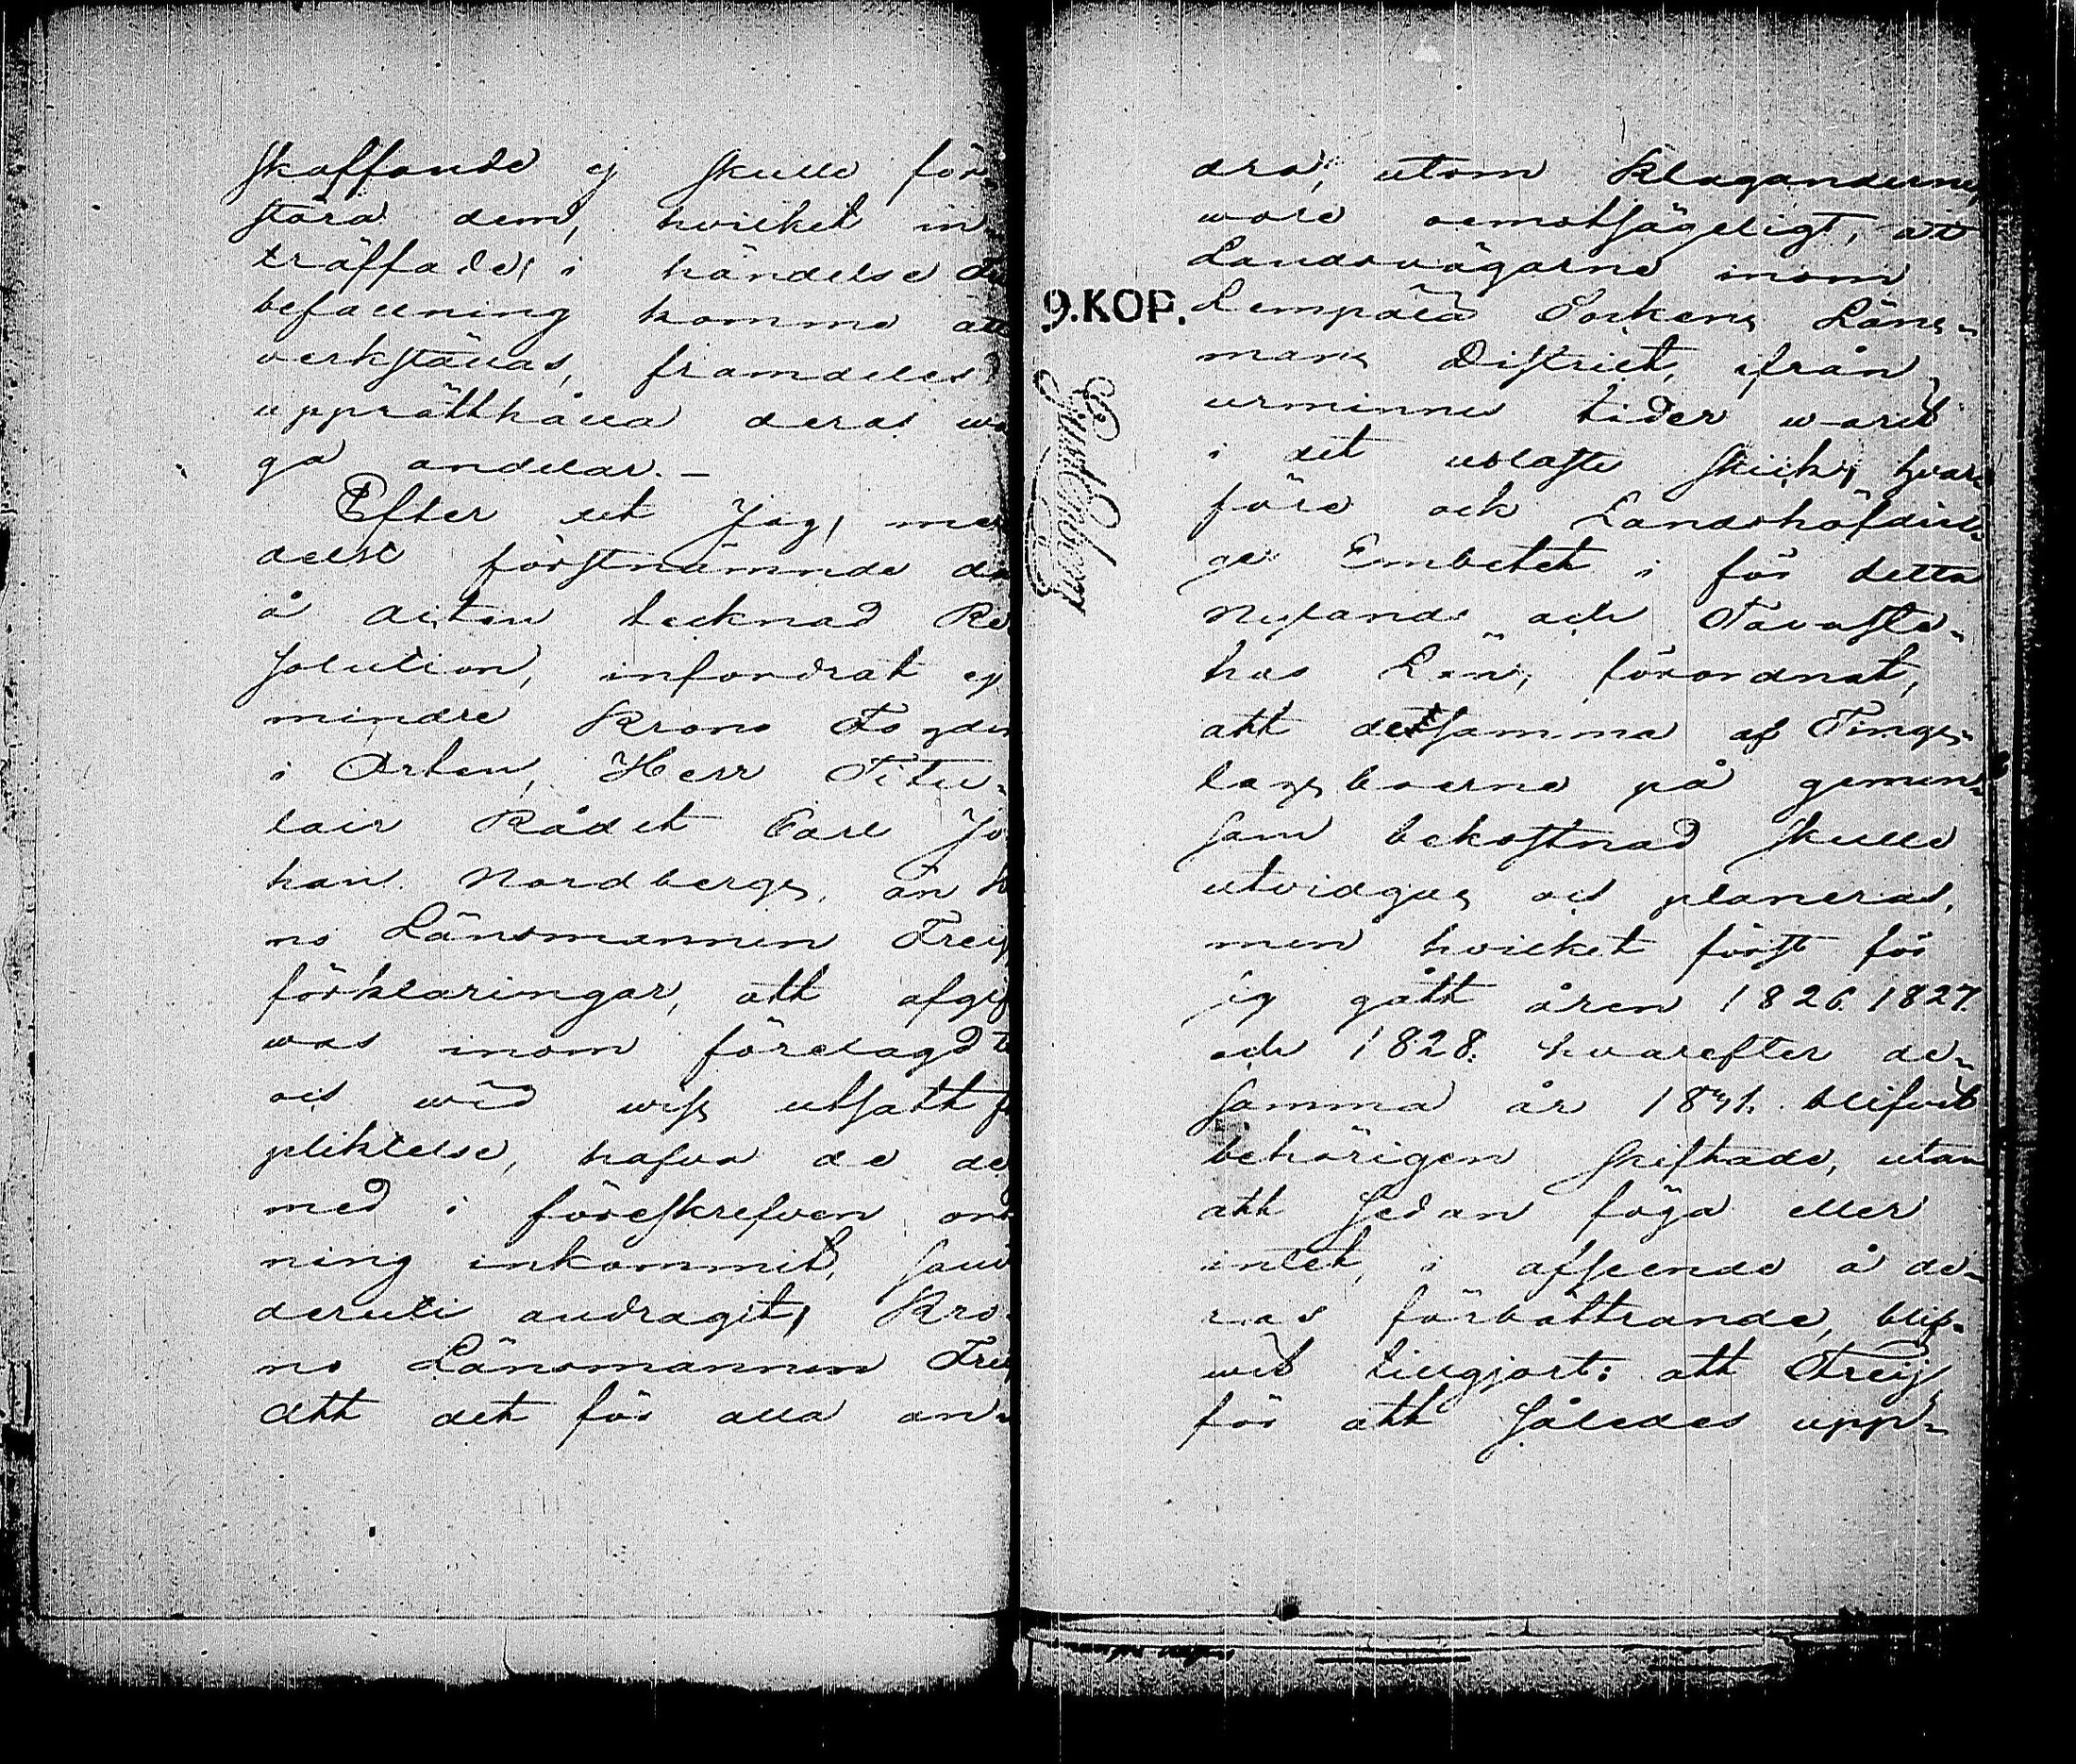 skaffande ej skulle för-
störa dem, hvilket in-
träffade, i händelse
befallning komme att
verkställas, framdeles
upprätthålla deras wä
ga andelar. –
Efter det Jag, me
delst förstnämnde da
å acten tecknad Re
solution, infordrat ej
mindre Krono Fogden
i Orten, Herr Titu-
lair Rådet Carl Jo
han Nordbergs, än
no Länsmannen Freij
förklaringar, att afgif
was inom förelagd
och wid wiss utsatt
pliktelse, hafva de de
med i föreskrefven ord
ning inkommit, samt
deruti andragit, Kro-
no Länsmannen Frei
Att det för alla an-
dra, utom Klaganderne,
wore oemotsägeligt, att
Landsvägarne inom
9.KOP.
Lempälä Sockens Läns-
mans District, ifrån
urminnes tider warit
i det uslaste skick, hvar-
före och Landshöfdin-
ge Embetet i för detta
Nylands och Tavaste-
hus Län, förordnat,
att detsamma af Tings-
lagsboerne på gemen-
sam bekostnad skulle
utvidgas och planeras,
men hvilket först för
sig gått åren 1826. 1827.
och 1828. hvarefter de-
samma år 1831. blifvit
behörigen skiftade, utan
att sedan föga eller
intet, i afseende å de-
ras förbättrande, blif-
wit tillgjort: att Freij,
för att således upp-